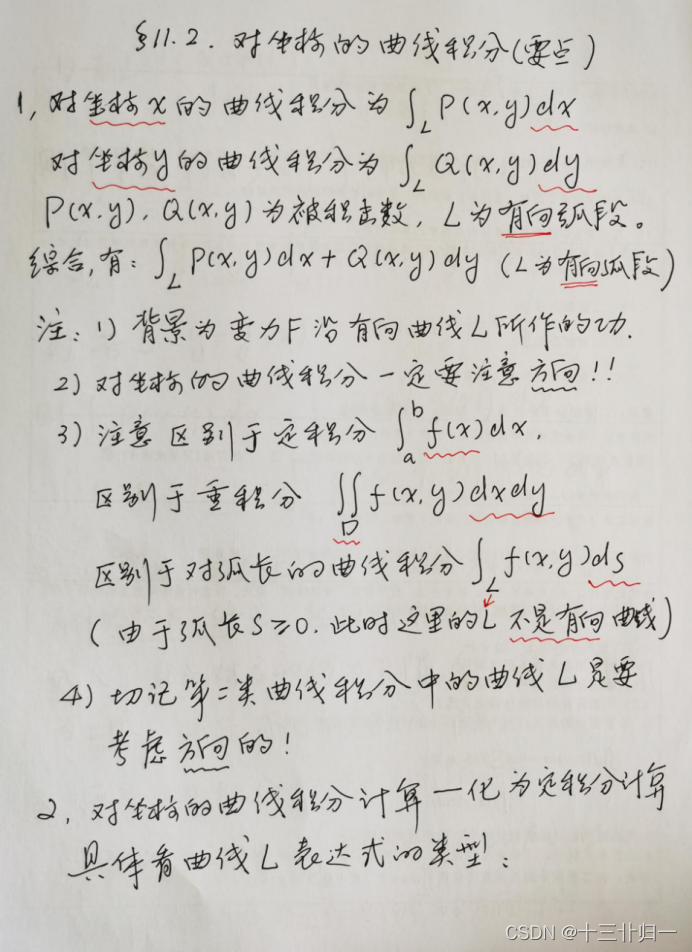 §11.2. 对坐标的曲线积分(要点)
1, 对坐标x的曲线积分为 ∫_L P(x,y)dx
对坐标y的曲线积分为 ∫_L Q(x,y)dy
P(x,y), Q(x,y)为被积函数, L为有向弧段。
综合,有: ∫_L P(x,y)dx + Q(x,y)dy (L为有向弧段)
注: 1) 背景为变力F沿有向曲线L所作的功.
2) 对坐标的曲线积分一定要注意方向!!
3) 注意区别于定积分 ∫_a^b f(x)dx,
区别于重积分 ∬_D f(x,y)dxdy
区别于对弧长的曲线积分 ∫_L f(x,y)ds
(由于弧长S≥0. 此时这里的L不是有向曲线)
4) 切记第二类曲线积分中的曲线L是要
考虑方向的!
2, 对坐标的曲线积分计算一化为定积分计算
具体看曲线L表达式的类型:
CSDN @十三卝归一